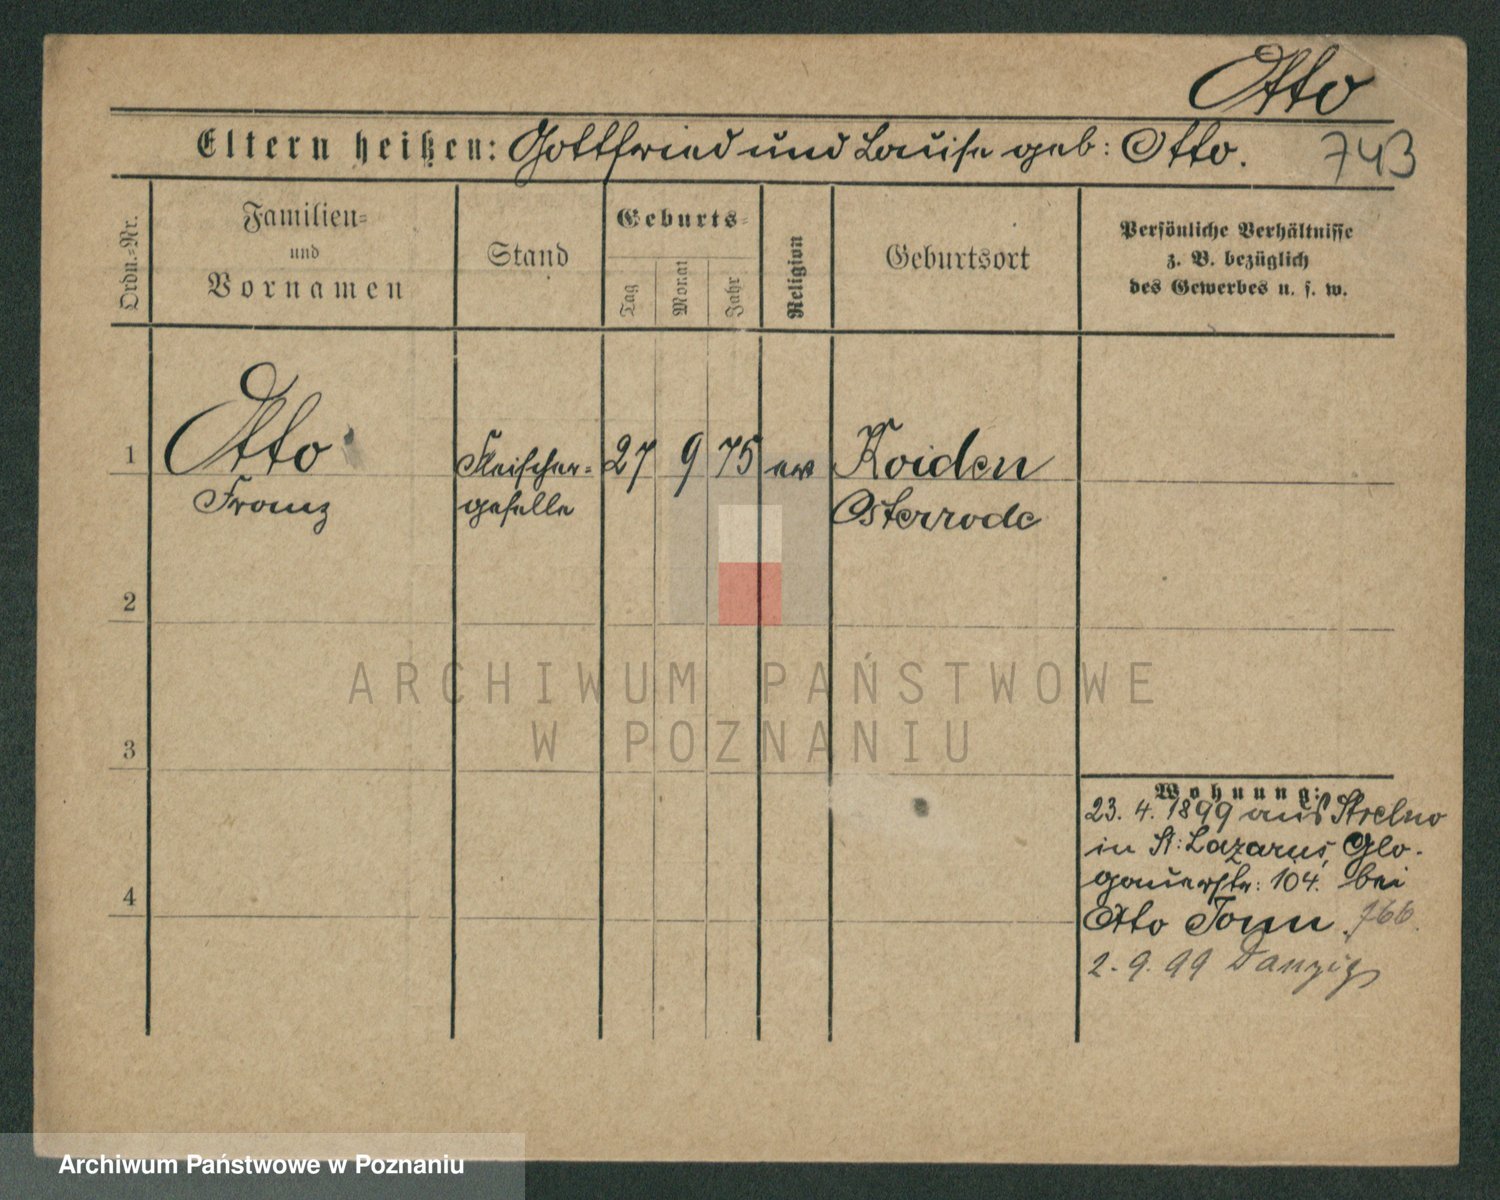 Otto
Eltern heißen: Gottfried und Louise geb: Otto.
743
Ordn.-Nr.
Familien-
und
Vornamen
Stand
Geburts-
Tag
Monat
Jahr
Religion
Geburtsort
Persönliche Verhältnisse
z. B. bezüglich
des Gewerbes u. s. w.
1 Otto Fleischer- 27 9 75 ev Koiden
Franz geselle Osterrode
2
ARCHIWUM PAŃSTWOWE
W POZNANIU
3
Wohnung:
23. 4. 1899 aus Strelno
in St: Lazarus, Glo-
gauerstr: 104. bei
4
Otto Tonn. 766.
2. 9. 99 Danzig
Archiwum Państwowe w Poznaniu